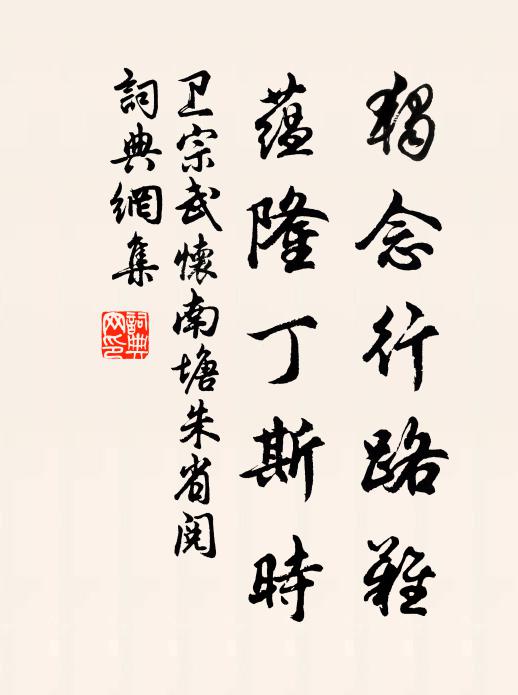 獨念行路難
蘊隆丁斯時
卫宗武懷南塘朱省閱
詞典網集
詞典
网印